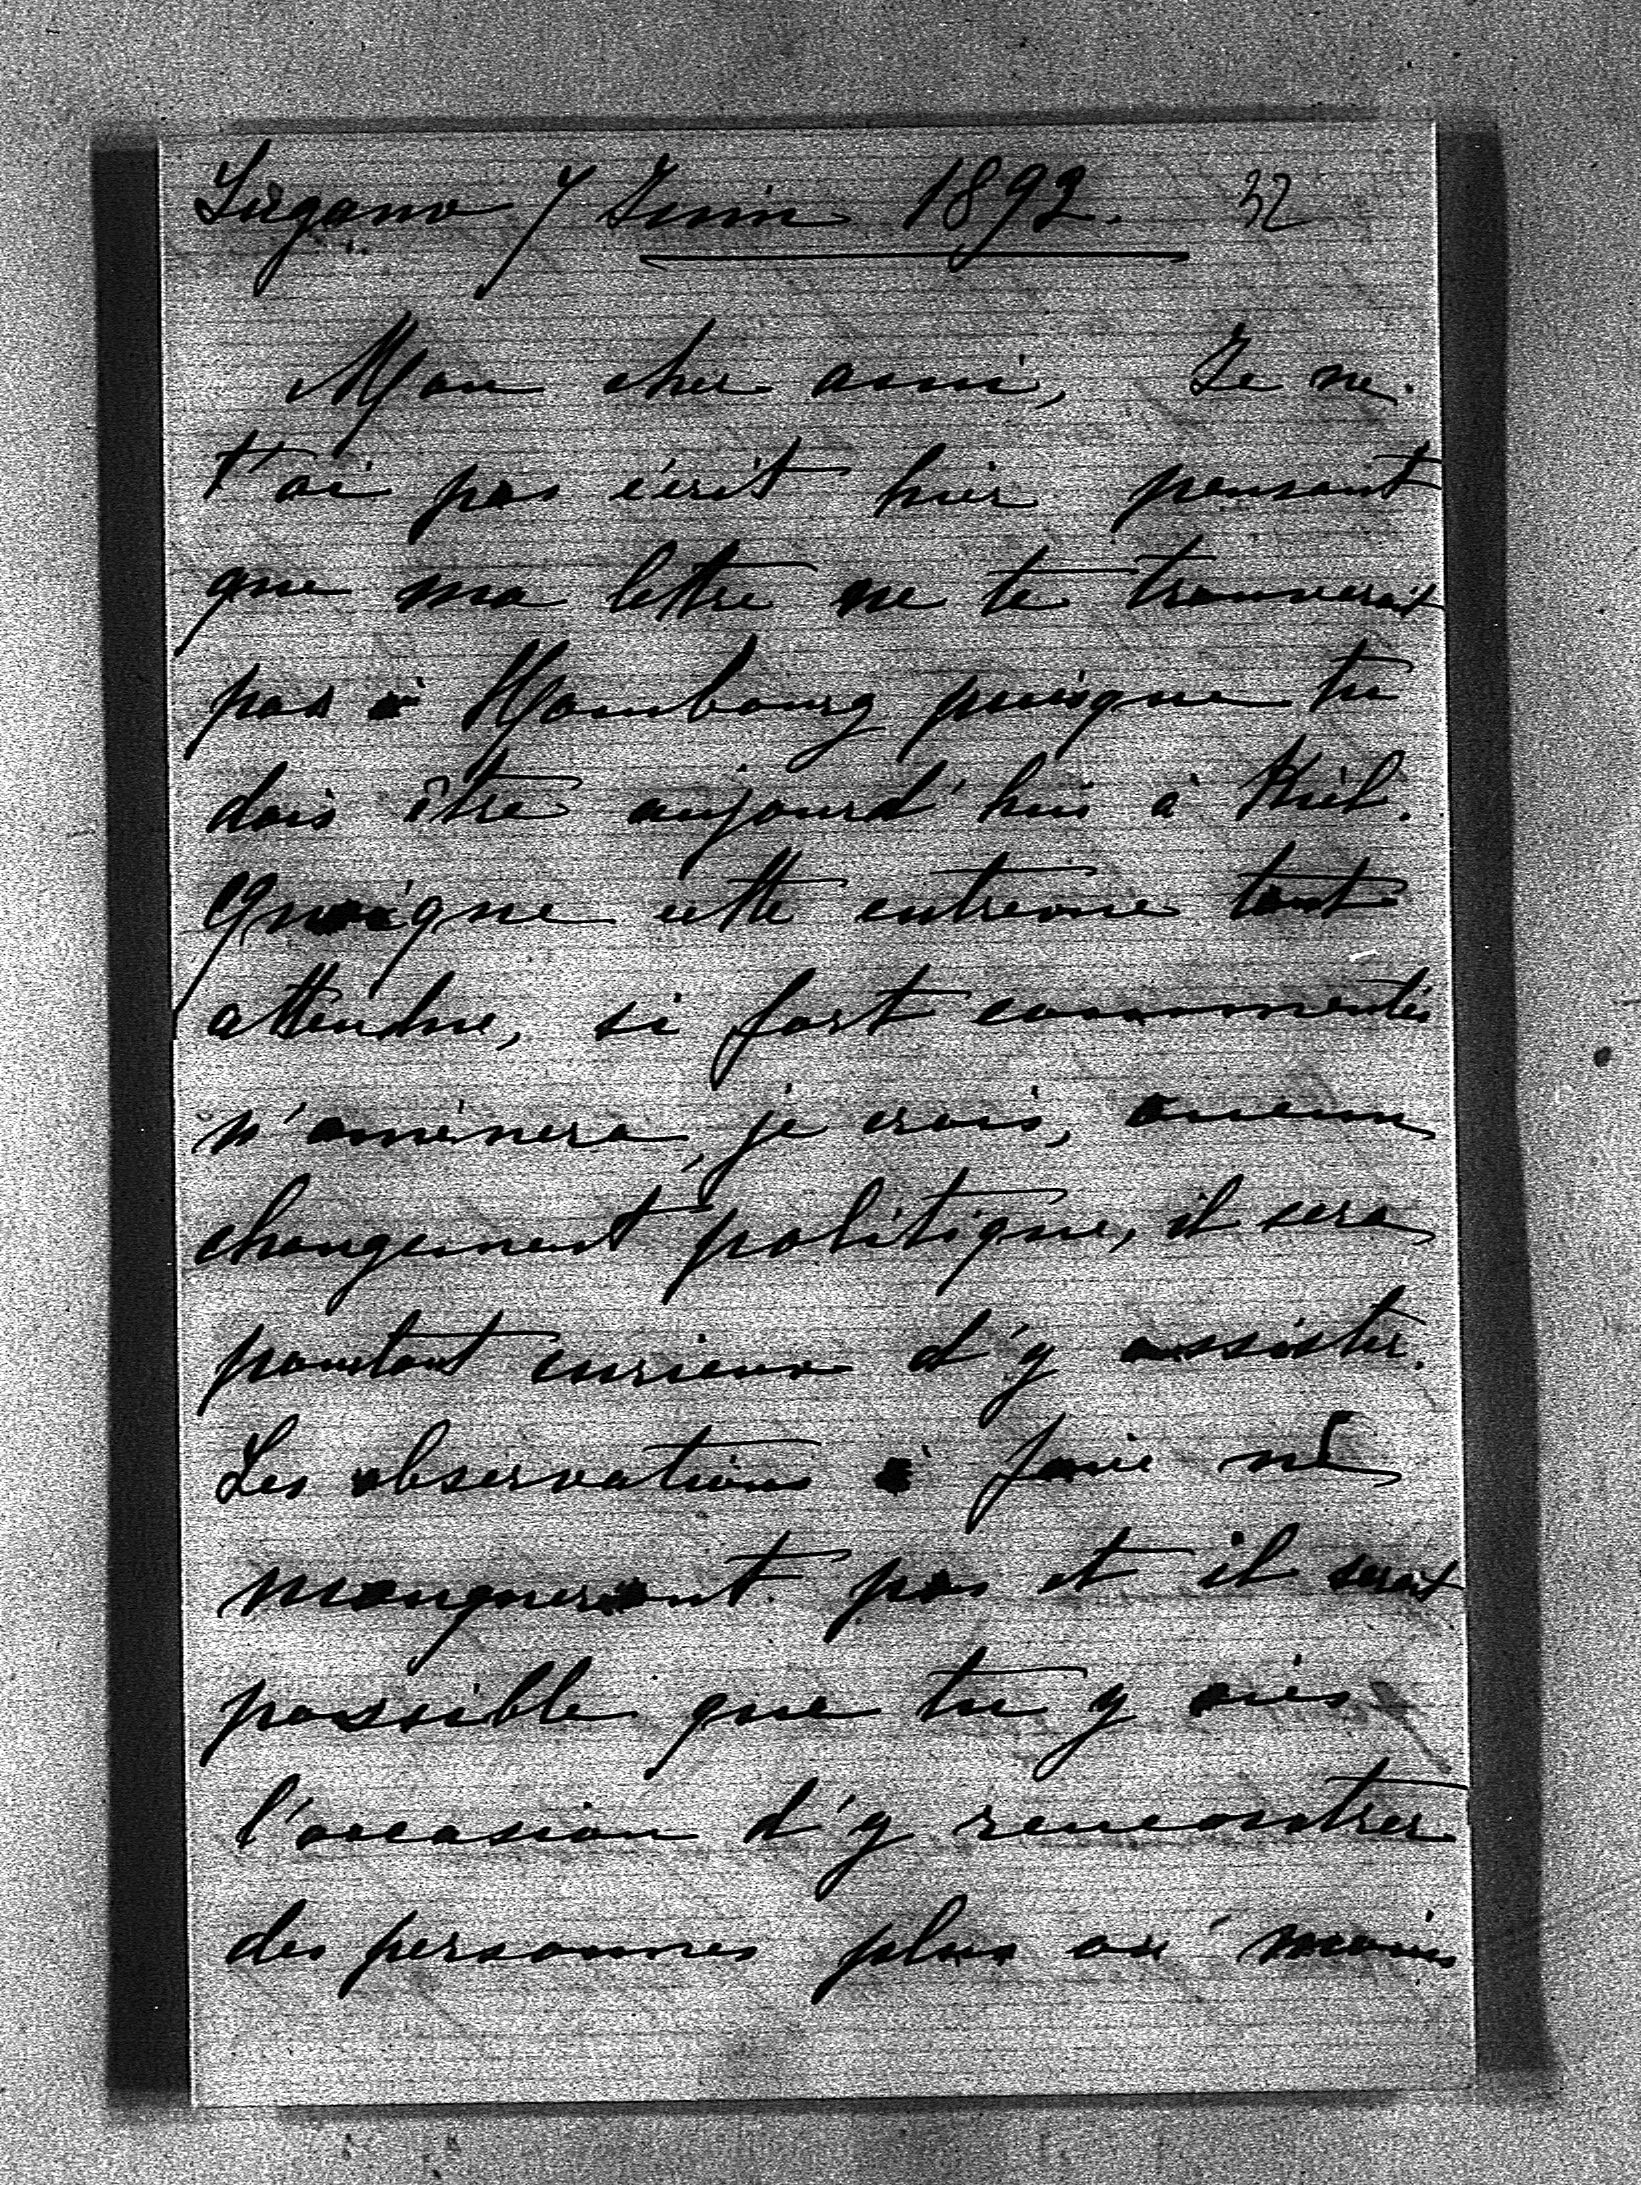 Lugano 7 Juin 1892. 32
Mon cher ami, Je ne
t'ai pas écrit hier pensant
que ma lettre ne te trouverait
pas à Hambourg puisque tu
dois être aujourd'hui à Kiel.
Quoique cette entrevue tant
attendue, si fort commentée
n'amènera, je crois, aucun
changement politique, il sera
pourtant curieux d'y assister.
Les observations à faire ne
manqueront pas et il serait
possible que tu y aies
l'occasion d'y rencontrer
des personnes plus ou moins